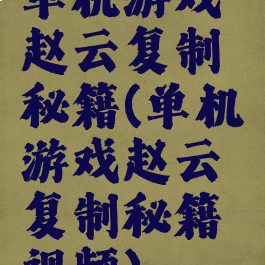 单机游戏
赵云复制
秘籍(单机
游戏赵云
复制秘籍
视频)